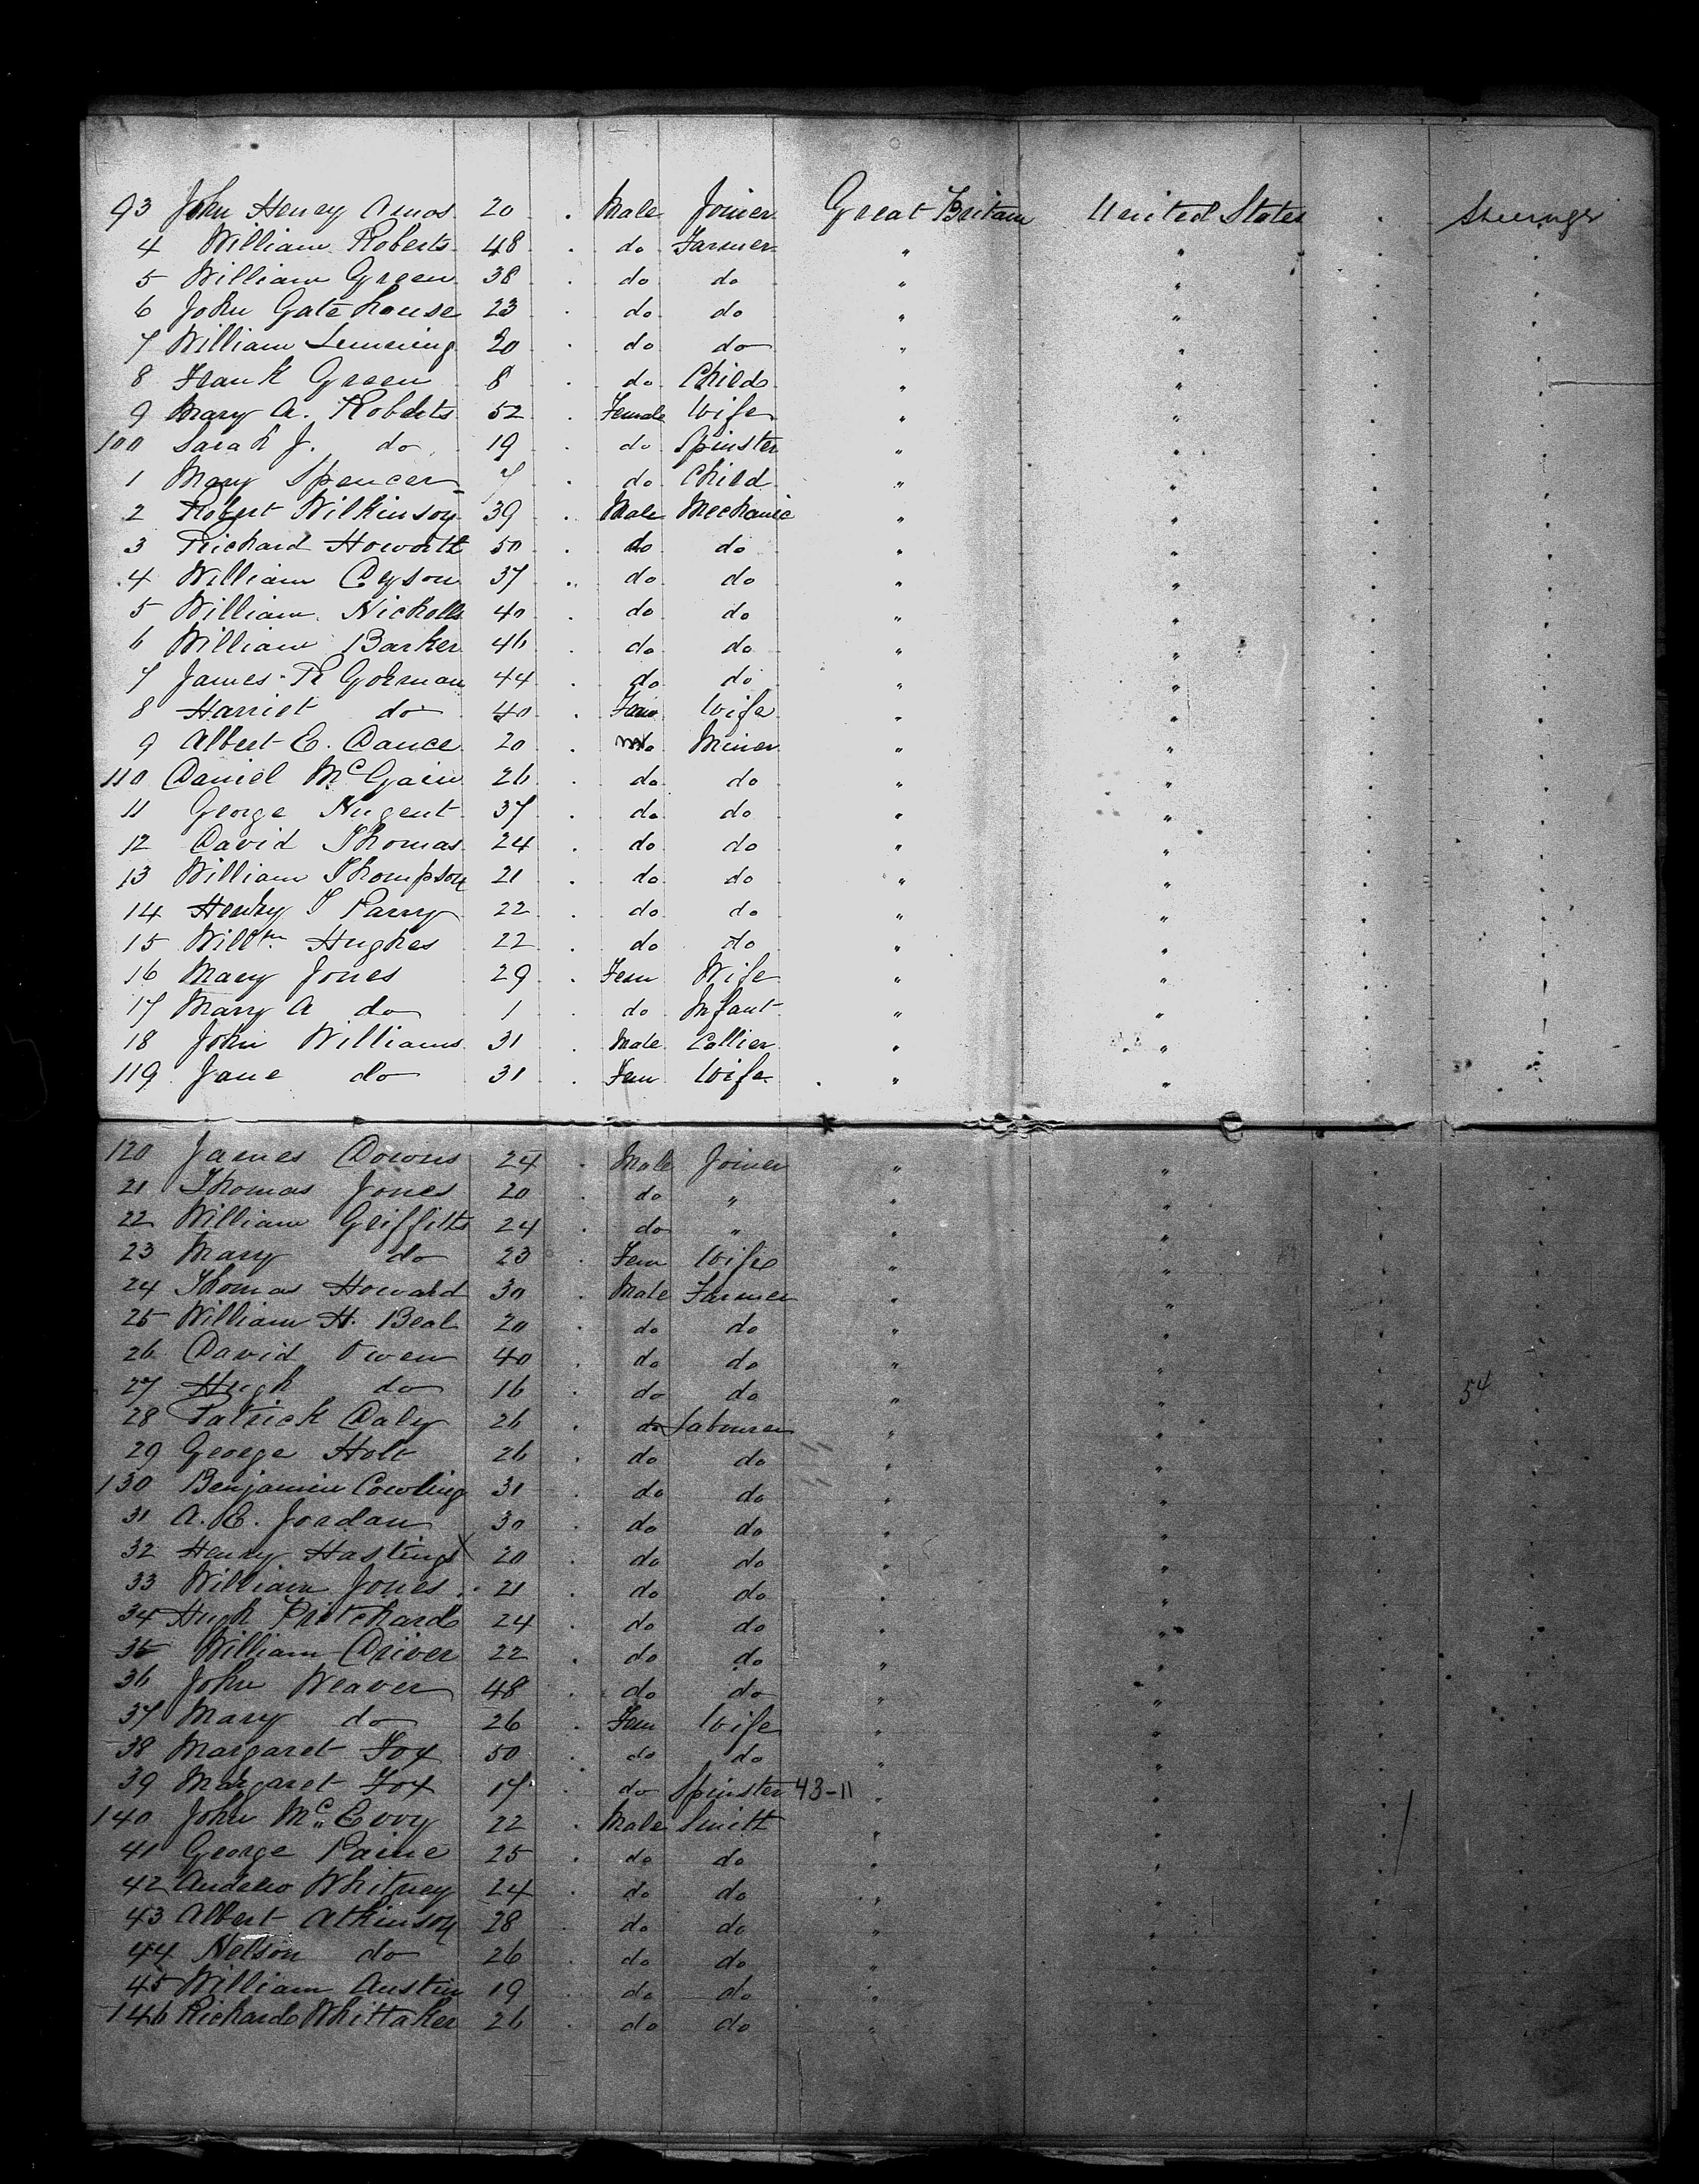 93 John Henry Amos 20 . Male Joiner Great Britain United States . Steerage
4 William Roberts 48 . do Farmer " "
5 William Green 38 . do do " "
6 John Gatehouse 23 . do do " "
7 William 20 . do do " "
8 Frank Green 8 . do Child " "
9 Mary A. Roberts 52 . Female Wife " "
100 Sarah J. do 19 . do Spinster " "
1 Mary Spencer 7 . do Child " "
2 Robert Wilkinson 39 . Male Mechanic " "
3 Richard Howorth 50 . do do " "
4 William Dyson 37 . do do " "
5 William Nicholls 40 . do do " "
6 William Barker 46 . do do " "
7 James R Gorman 44 . do do " "
8 Harriet do 40 . Fem Wife " "
9 Albert E. Dance 20 . Miner " "
110 Daniel McGain 26 . do do " "
11 George Nugent 37 . do do " "
12 David Thomas 24 . do do " "
13 William Thompson 21 . do do " "
14 Henry T Parry 22 . do do " "
15 Willm Hughes 22 . do do " "
16 Mary Jones 29 . Fem Wife " "
17 Mary A do 1 . do Infant " "
18 John Williams 31 . Male Collier " "
119 Jane do 31 . Fem Wife " "
120 James Downs 24 . Male Joiner " "
21 Thomas Jones 20 . do " " "
22 William Griffiths 24 . do " " "
23 Mary do 23 . Fem Wife " "
24 Thomas Howard 30 . Male Farmer " "
25 William H. Beal 20 . do do " "
26 David Owen 40 . do do " "
27 Hugh do 16 . do do " " 54
28 Patrick Daly 26 . do Labourer " "
29 George Holt 26 . do do " "
130 Benjamin Cowling 31 . do do " "
31 A. E. Jordan 30 . do do " "
32 Henry Hastings X 20 . do do " "
33 William Jones 21 . do do " "
34 Hugh Pritchard 24 . do do " "
35 William Driver 22 . do do " "
36 John Weaver 48 . do do " "
37 Mary do 26 . Fem Wife " "
38 Margaret Fox 50 . do do " "
39 Margaret Fox 17 . do Spinster 43-11 " "
140 John McEvoy 22 . Male Smith " "
41 George Paine 25 . do do " "
42 Andrew Whitney 24 . do do " "
43 Albert Atkinson 28 . do do " "
44 Nelson do 26 . do do " "
45 William Austin 19 . do do " "
146 Richard Whittaker 26 . do do " "